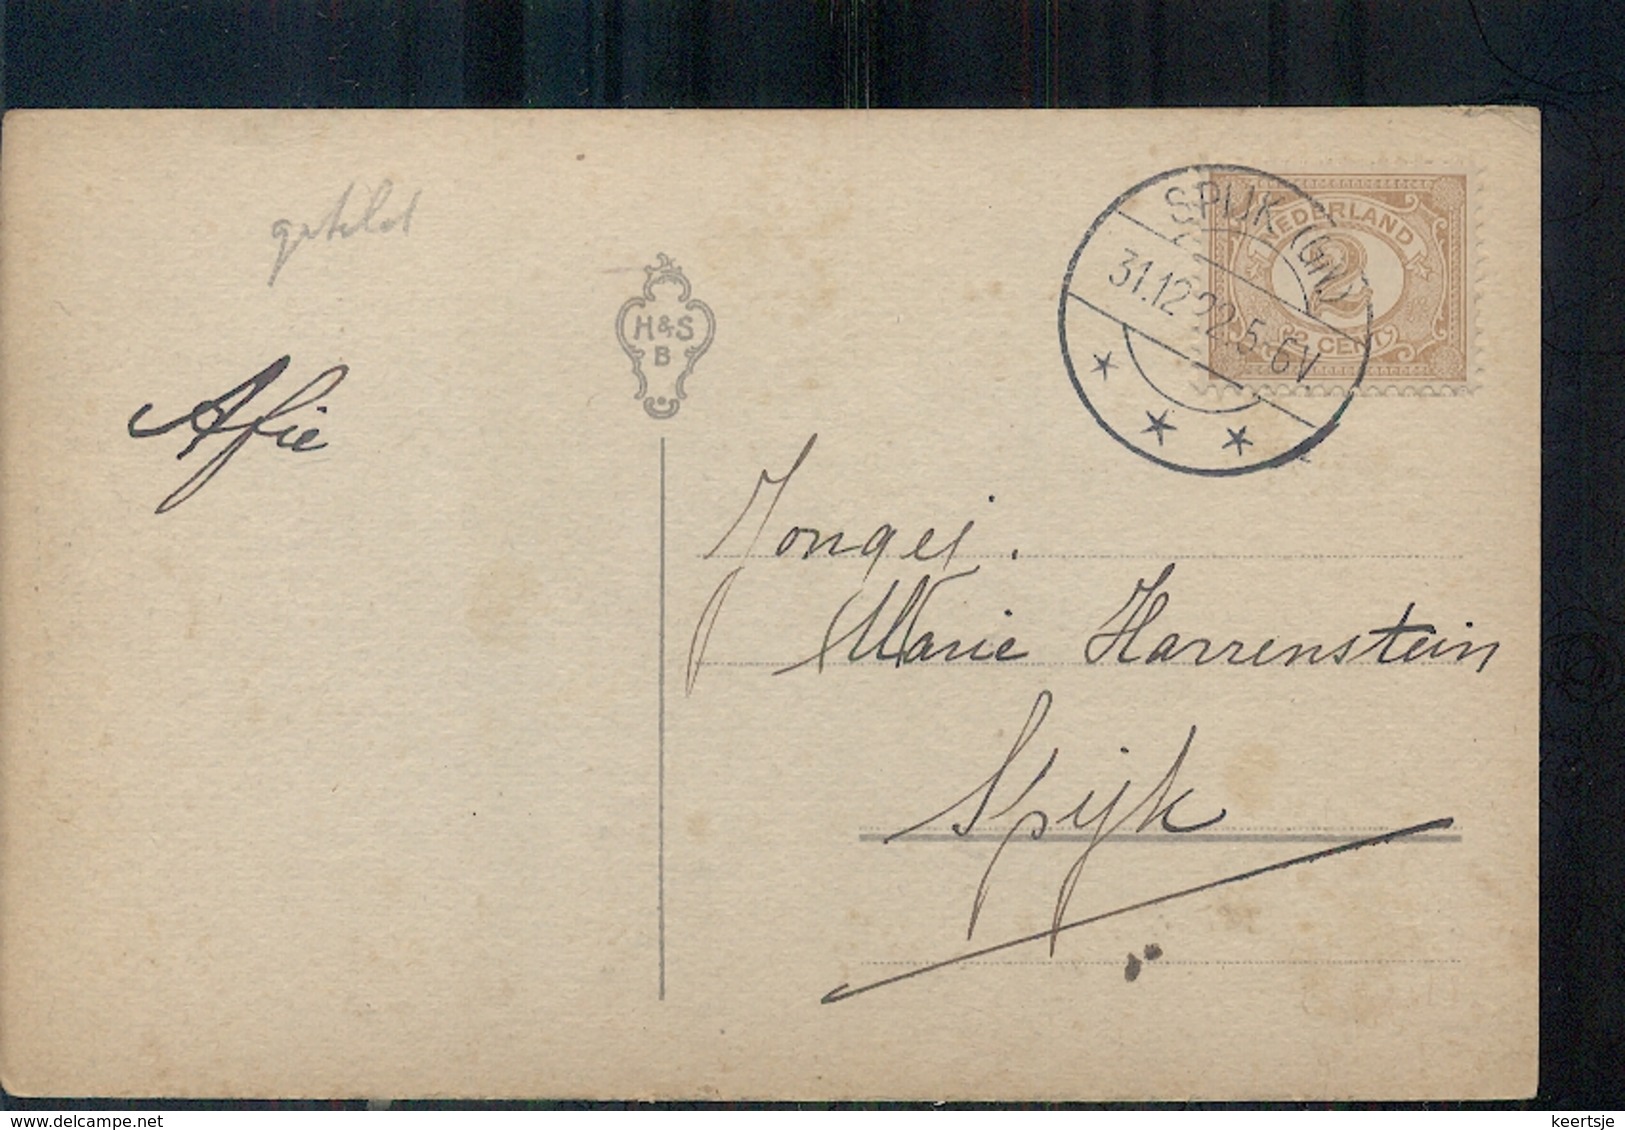 H&S
B
SPIJK (GN)
31.12.22.5-6V
NEDERLAND
2
2 CENT
Afie
Jongej.
Marie Harrenstein
Spijk
delcampe.net
keertsje